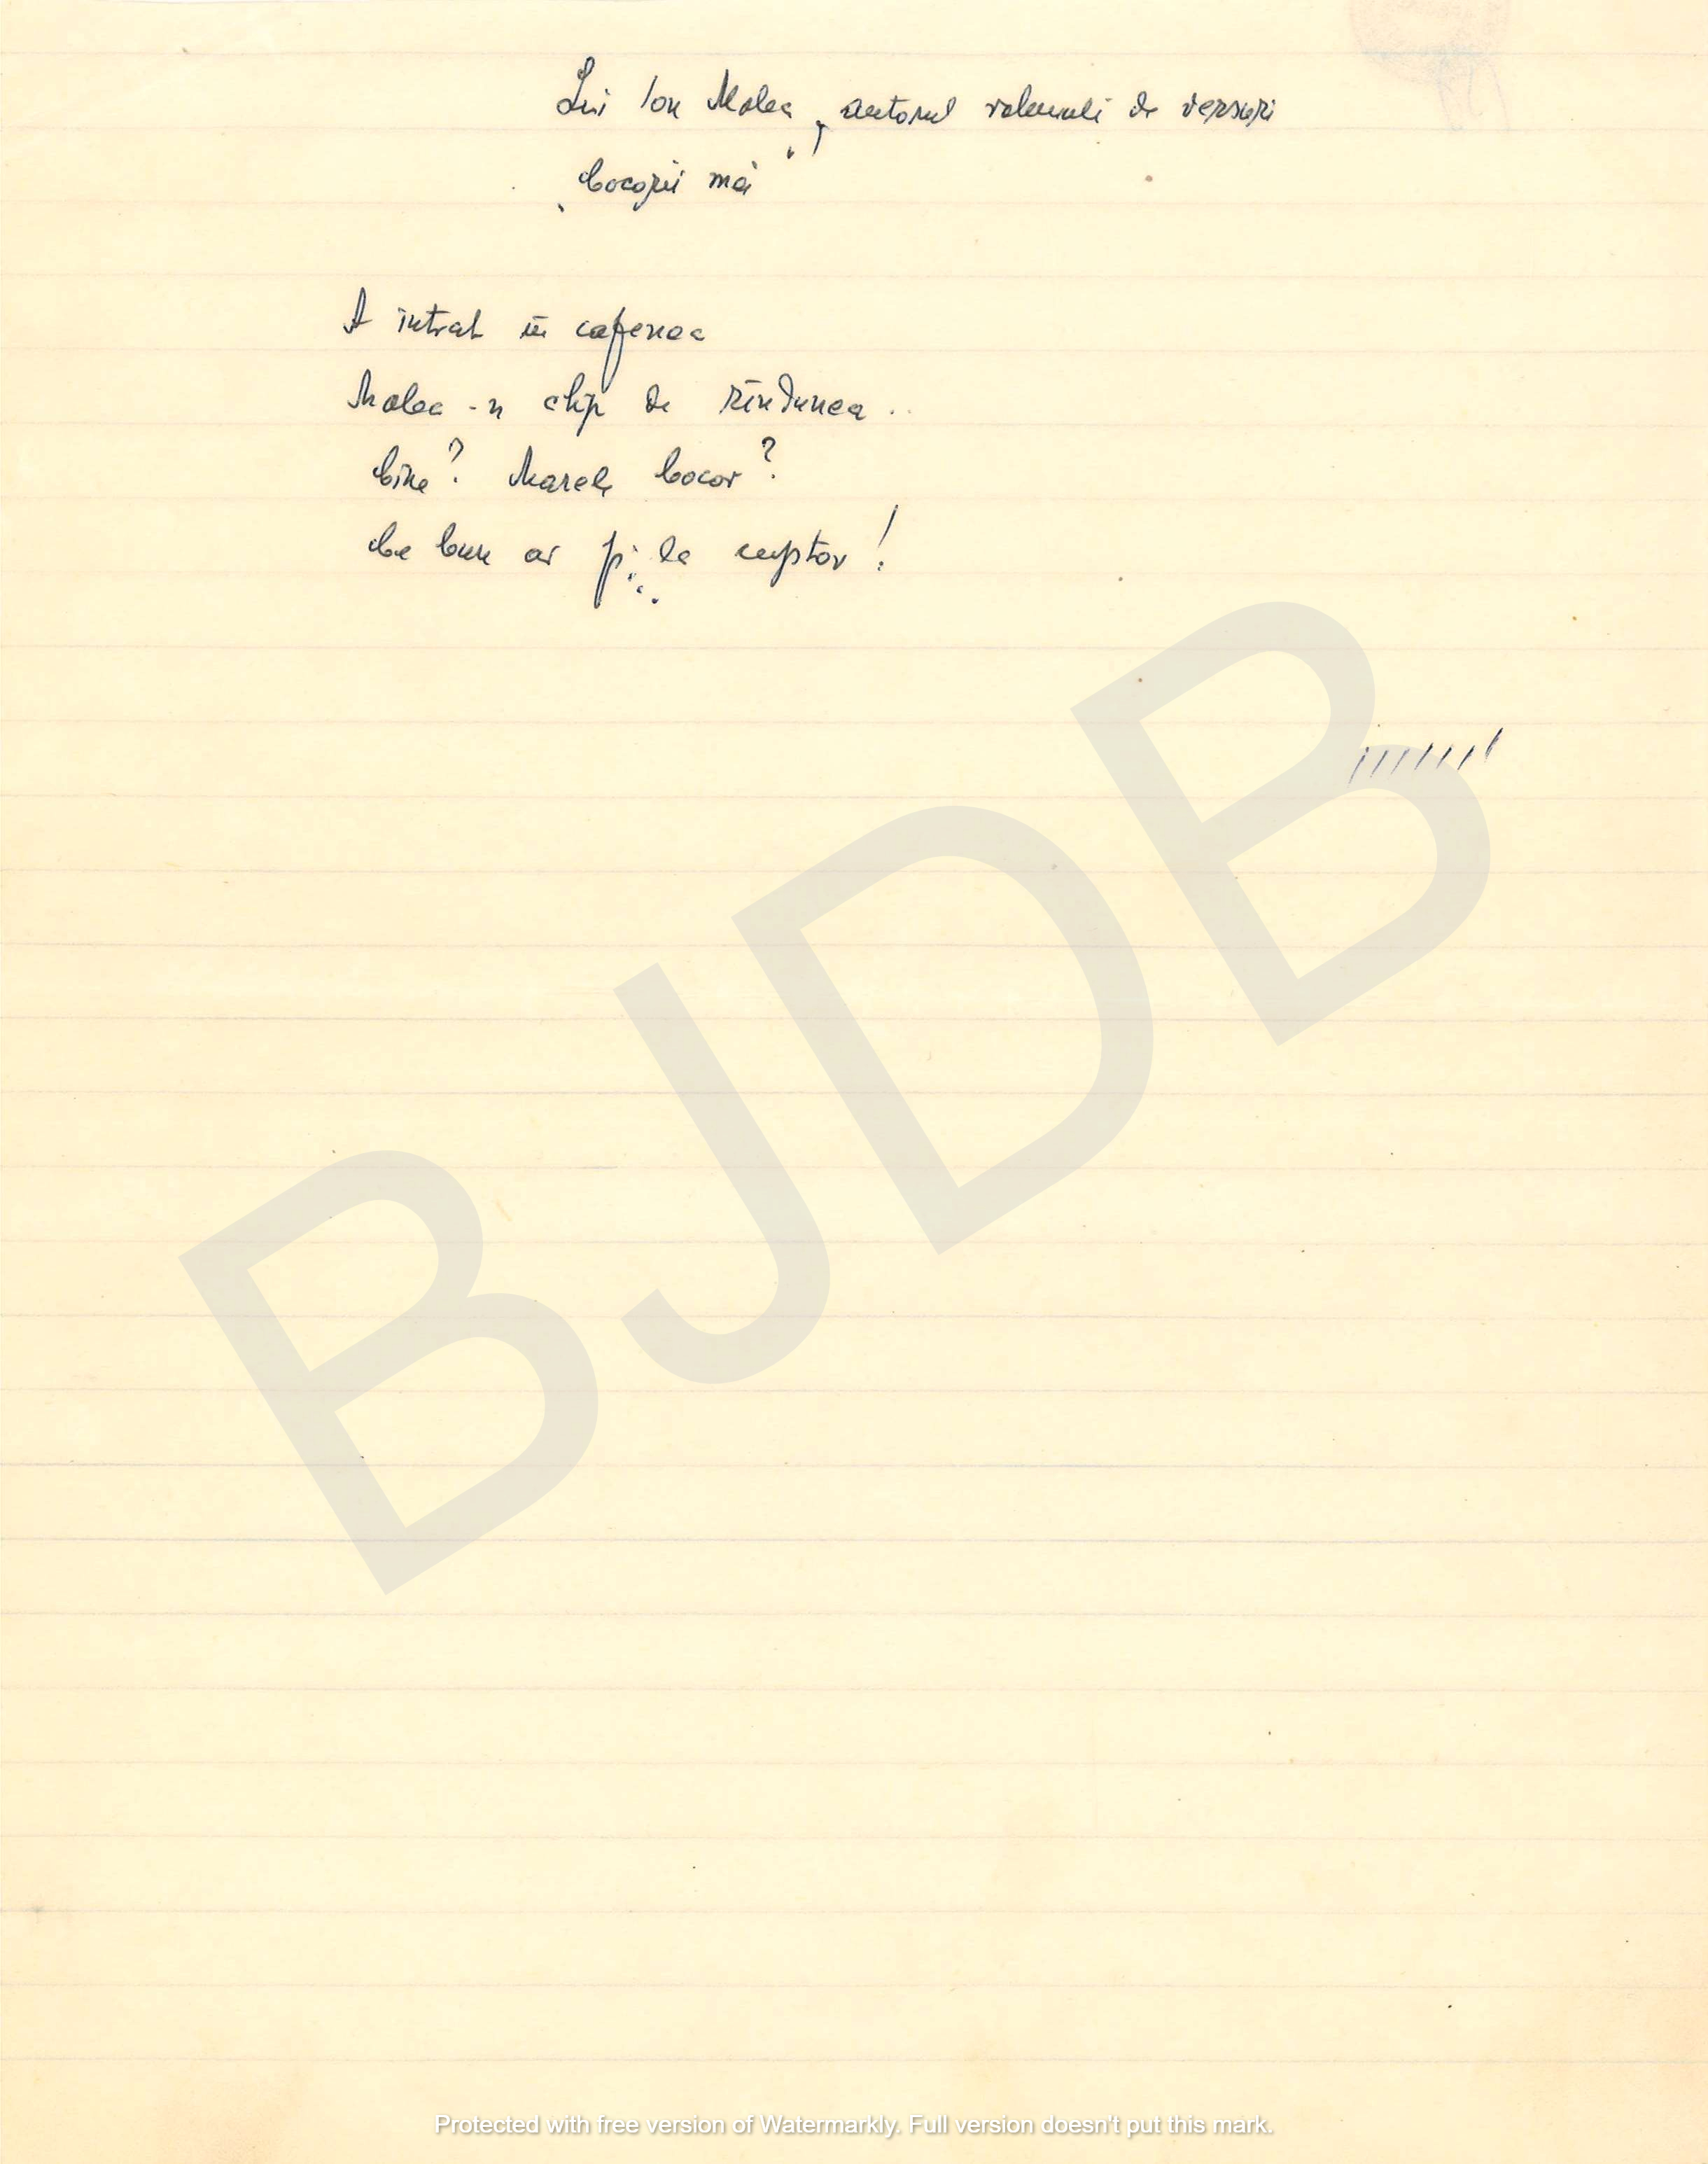 Lui Ion Malea, autorul volumului de versuri
„Cocorii mei”
A intrat în cafenea
Malea-n chip de rîndunea..
Cine? Marele Cocor?
Ce bun ar fi... la cuptor!
BJDB
Protected with free version of Watermarkly. Full version doesn't put this mark.